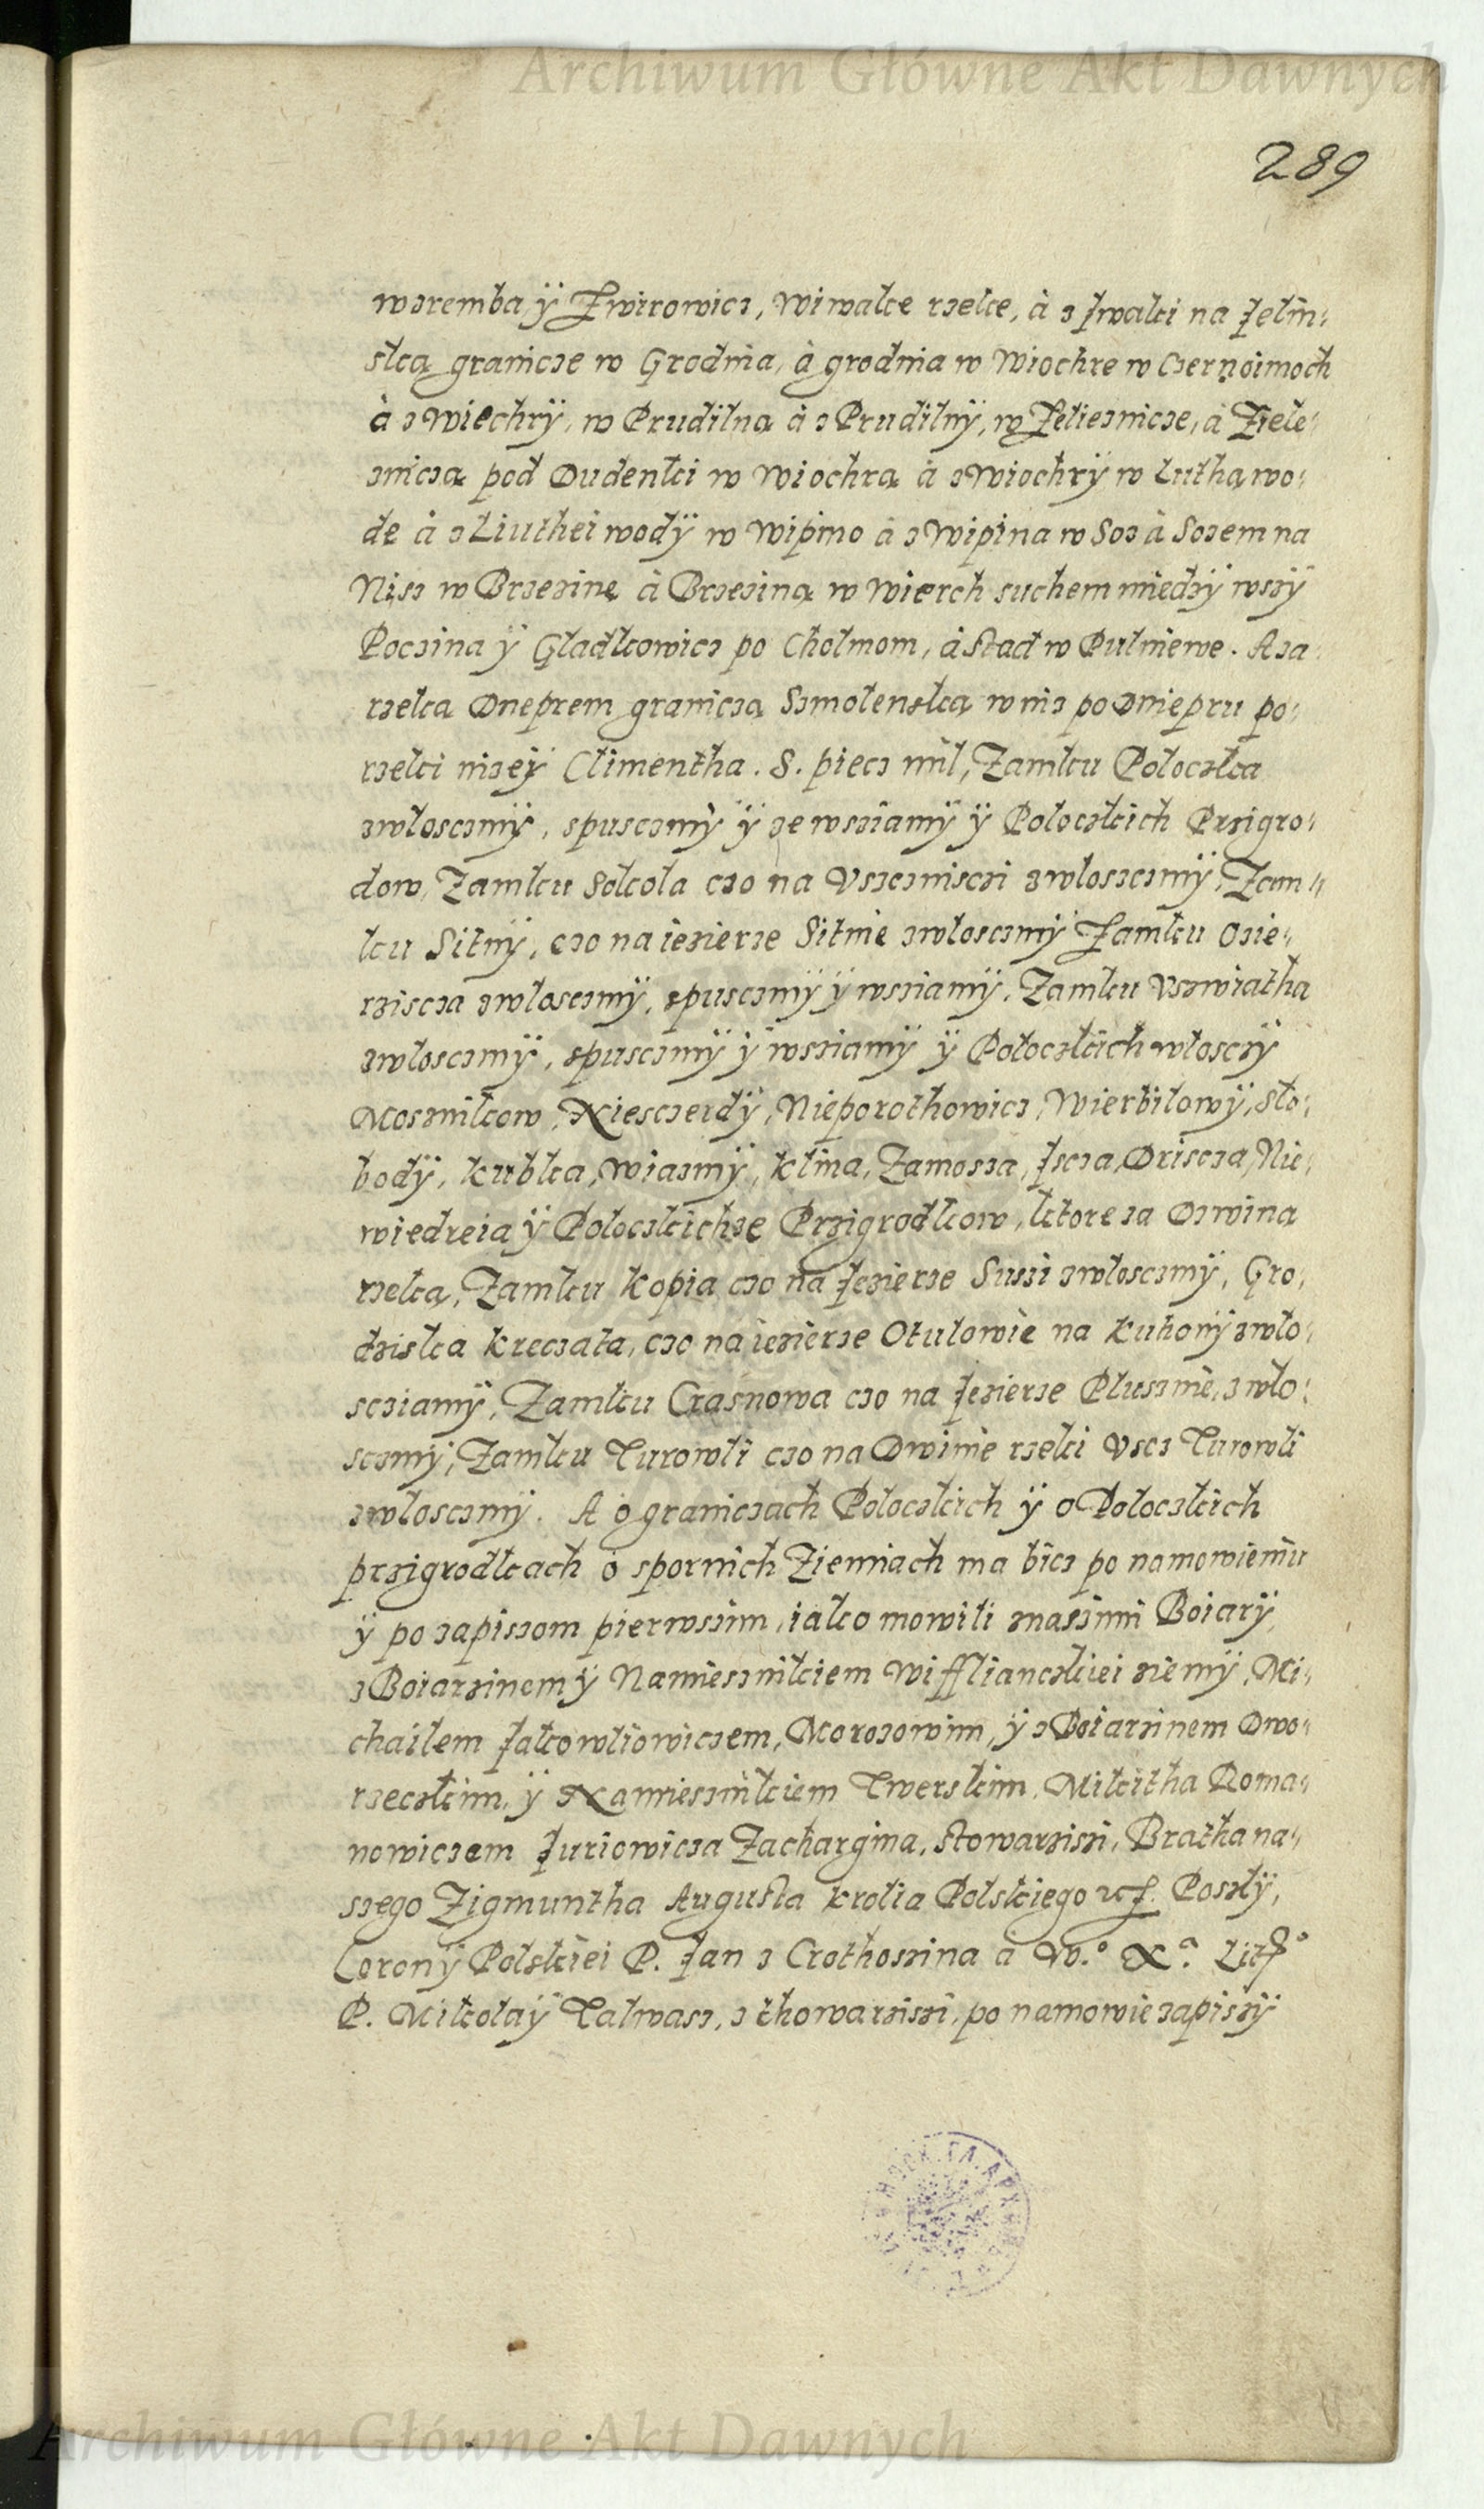 Archiwum Główne Akt Dawnych
289
wzremba ÿ Zwirowicz, wiwalke rzeke, à z Jwalki na Jelin⸗
ską granicze w Grodnia, à grodnia w Wiochre w Czernoimoch
à z Wiechrÿ, w Prudilna à z Prudilnÿ, w Zeliesnicze, à Ziele⸗
znicza pod Dudenki w Wiochra à z Wiochrÿ w Lutha wo⸗
de à z Liuthei wodÿ w Wipino à z Wipina w Soz à Sozem na
Nisz w Brzezine à Brzezina w Wierch suchem miedzÿ wszÿ
Poczina ÿ Gladkowicz po Cholmom, à stad w Pulniewe. A za
rzeka Dneprem granicza Szmolenska w niz po Dniepru po⸗
rzeki nizeÿ Climentha. S. piecz mil, Zamku Poloczka
zwlosczmÿ, spusczmÿ ÿ ze wsziamÿ ÿ Poloczkich Przigro⸗
dow, Zamku Sokola czo na Vszczmisczi zwloszczmÿ, Zam⸗
ku Sitnÿ, czo na iezierze Sitnie zwlosczmÿ Zamku Ozie⸗
rziscza zwlosczmÿ, spusczmÿ ÿ wsziamÿ, Zamku Vszwiatha
zwlosczmÿ, spusczmÿ ÿ wsziamÿ ÿ Poloczkich wlosczÿ
Mosznikow, Niesczerdÿ, Nieporothowicz, Wierbilowÿ, Slo⸗
bodÿ, kubka, Wiazmÿ, klina, Zamosza, Jscza, Driscza, Nie⸗
wiedreia ÿ Poloczkichze Przigrodkow, ktore za Dzwina
rzeka, Zamku kopia czo na Jezierze Suszi zwlosczmÿ, Gro⸗
dziska kreczata, czo na iezierze Otulowie na kuhonÿ zwlo⸗
scziamÿ, Zamku Crasnowa czo na Jezierze Plusznie, zwlo⸗
sczmÿ, Zamku Turowli czo na Dwinie rzeki Vscz Turowli
zwlosczmÿ. A o graniczach Poloczkich ÿ o Poloczkich
przigrodkach o spornich Ziemiach ma bicz po namowieniu
ÿ po zapiszom pierwszim, iako mowili znaszimi Boiarÿ,
z Boiarzinem ÿ Namiesznikiem Wifflianczkiei ziemÿ, Mi⸗
chailem Jakowliowiczem, Morozowim, ÿ z Boiarzinem Dwo⸗
rzeczkim, ÿ Namiesznikiem Twerskim, Mikitha Roma⸗
nowiczem Juriowicza Zachargina, stowarziszi, Bratha na⸗
szego Zigmuntha Augusta krolia Polskiego etc. Poszlÿ,
Coronÿ Polskiei P. Jan z Crothoszina à W.º X.ª Litº
P. Mikolaÿ Talwasz, z thowarziszi, po namowie zapiszÿ
Archiwum Główne Akt Dawnych